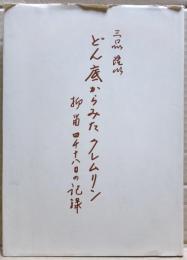 三品隆以
どん底からみたクレムリン
抑留四千十八日の記録